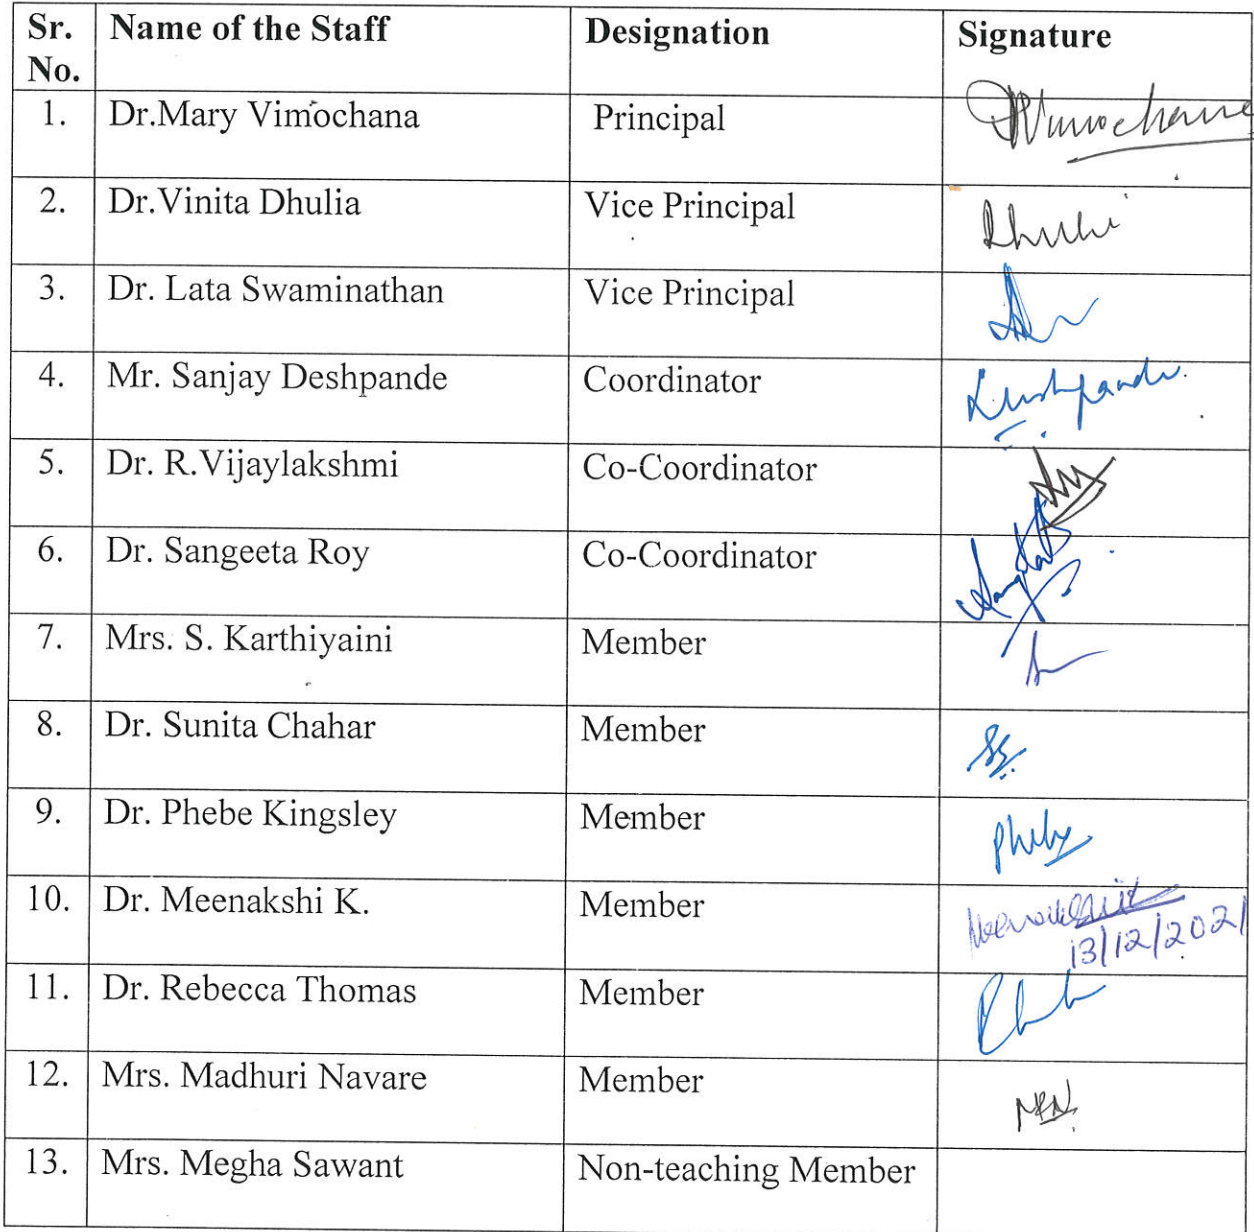 Sr. No. Name of the Staff Designation Signature
1. Dr.Mary Vimochana Principal Vimochana
2. Dr.Vinita Dhulia Vice Principal
3. Dr. Lata Swaminathan Vice Principal
4. Mr. Sanjay Deshpande Coordinator
5. Dr. R.Vijaylakshmi Co-Coordinator
6. Dr. Sangeeta Roy Co-Coordinator
7. Mrs. S. Karthiyaini Member
8. Dr. Sunita Chahar Member
9. Dr. Phebe Kingsley Member
10. Dr. Meenakshi K. Member
13/12/2021
11. Dr. Rebecca Thomas Member
12. Mrs. Madhuri Navare Member
13. Mrs. Megha Sawant Non-teaching Member